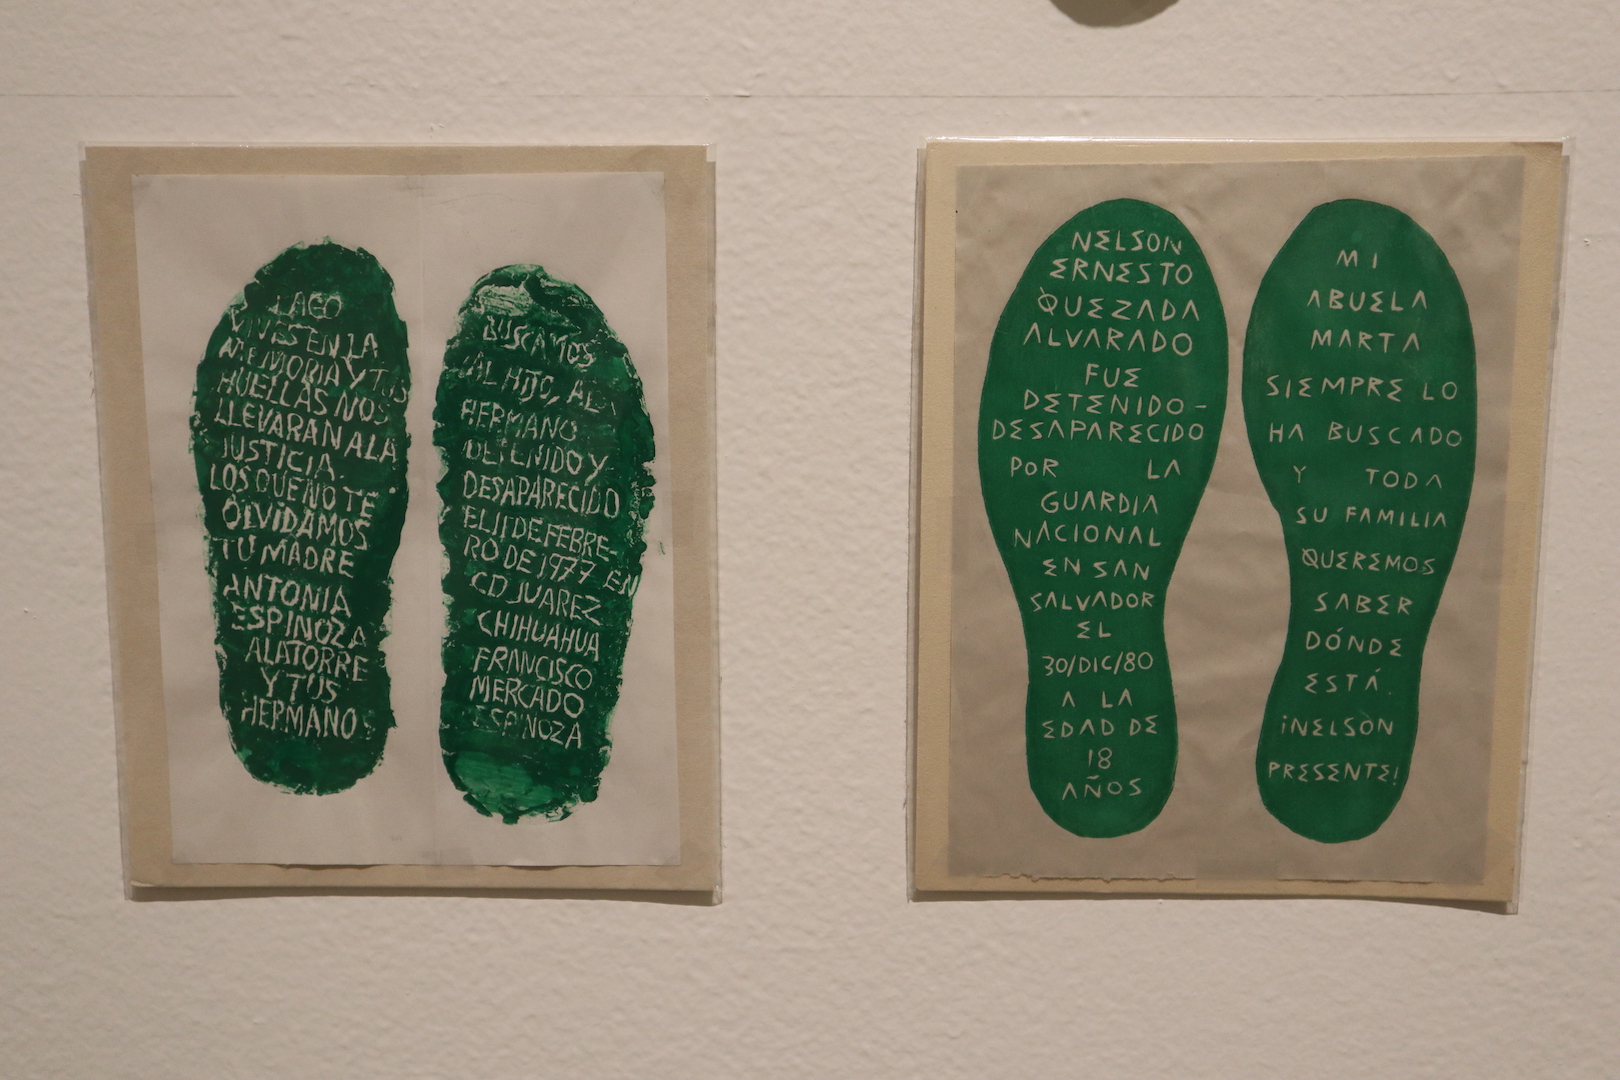 LAGO
VIVES EN LA
MEMORIA Y TUS
HUELLAS NOS
LLEVARAN A LA
JUSTICIA.
LOS QUE NO TE
OLVIDAMOS
TU MADRE
ANTONIA
ESPINOZA
ALATORRE
Y TUS
HERMANOS
BUSCAMOS
AL HIJO, AL
HERMANO
DETENIDO Y
DESAPARECIDO
EL 11 DE FEBRE-
RO DE 1977 EN
CD JUAREZ
CHIHUAHUA
FRANCISCO
MERCADO
ESPINOZA
NELSON
ERNESTO
QUEZADA
ALVARADO
FUE
DETENIDO-
DESAPARECIDO
POR LA
GUARDIA
NACIONAL
EN SAN
SALVADOR
EL
30/DIC/80
A LA
EDAD DE
18
AÑOS
MI
ABUELA
MARTA
SIEMPRE LO
HA BUSCADO
Y TODA
SU FAMILIA
QUEREMOS
SABER
DÓNDE
ESTÁ.
¡NELSON
PRESENTE!